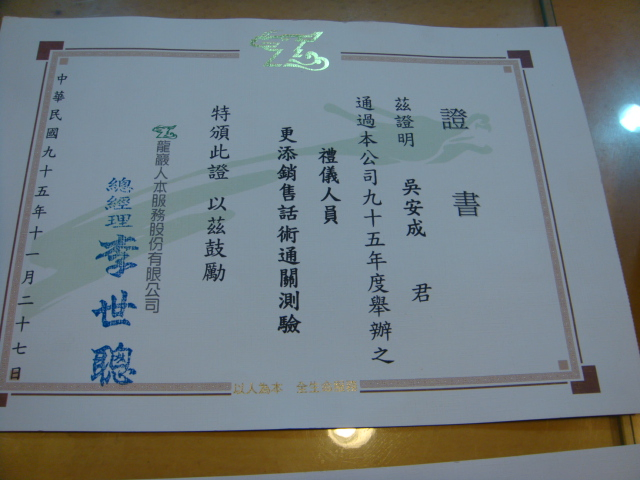 證書
茲證明 吳安成 君
通過本公司九十五年度舉辦之
禮儀人員
更添銷售話術通關測驗
特頒此證 以茲鼓勵
龍巖人本服務股份有限公司
總經理 李世聰
中華民國九十五年十一月二十七日
以人為本